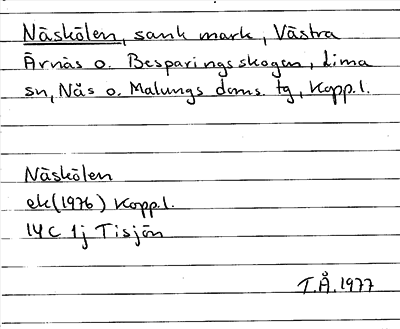 Näskölen, sank mark, Västra
Ärnäs o. Besparingsskogen, Lima
sn, Nås o. Malungs doms. tg, Kopp.l.
Näskölen
ek(1976) Kopp.l.
14C 1j Tisjön
T.Å.1977